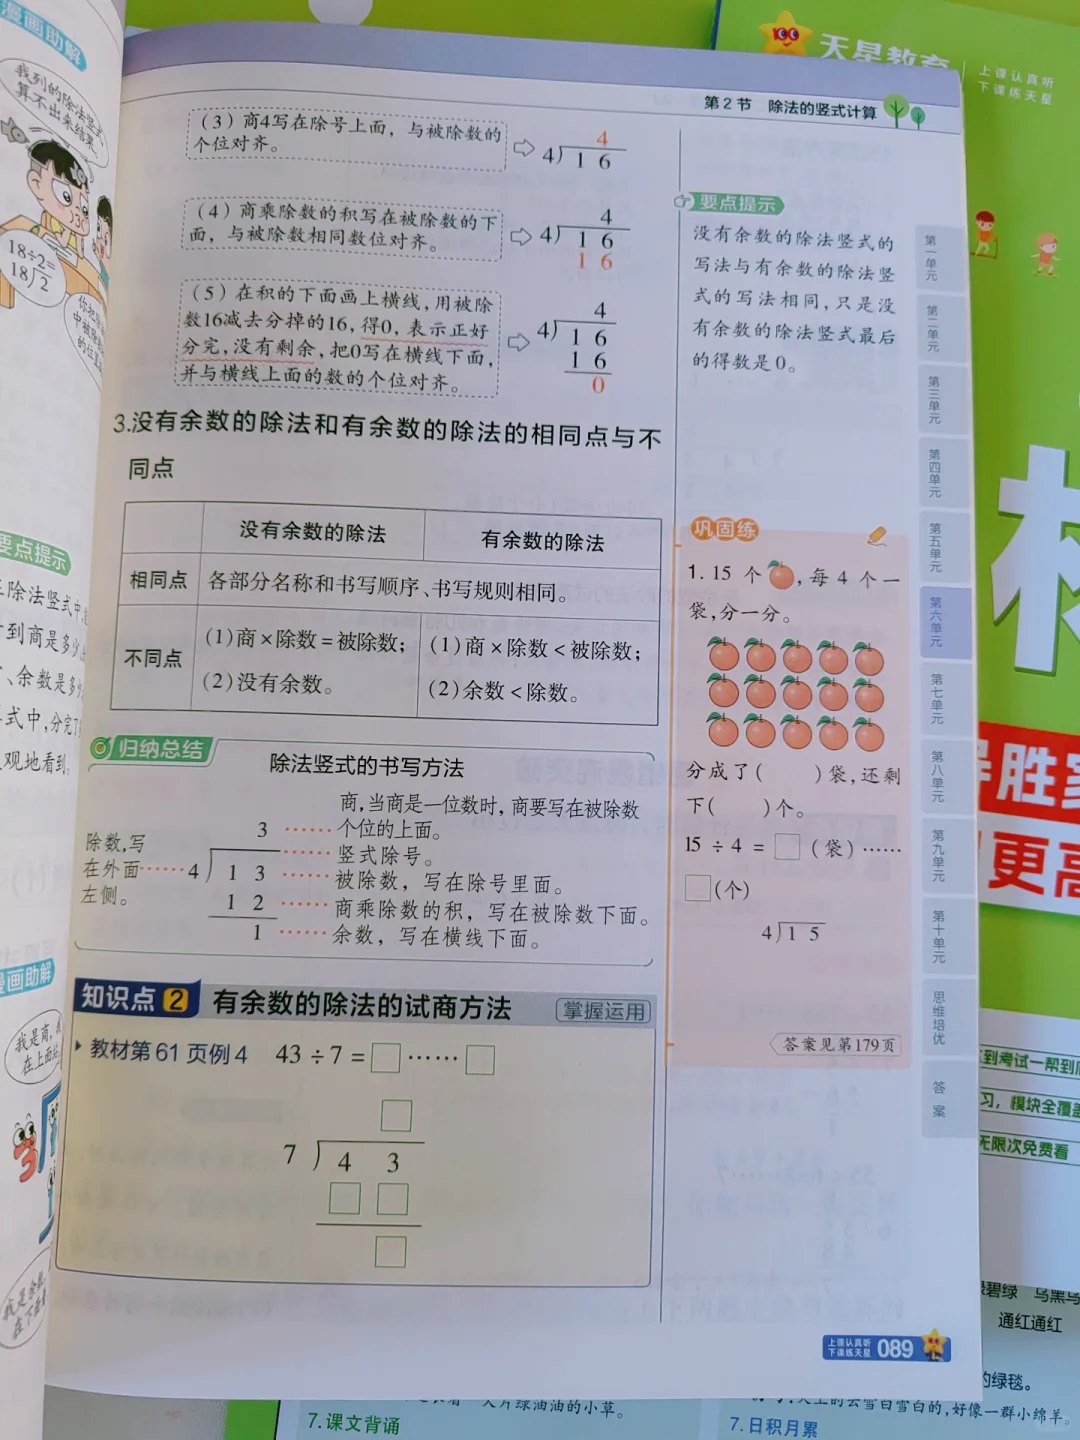 漫画助解
我列的除法竖式
算不出来结果
18÷2=
18⟌2
你把除
中被除数
的位
要点提示
到商是多少
、余数是多少
式中,分完了
观地看到。
漫画助解
我是商,我
在上面
我是余数,
在下面
天星教育
上课认真听
下课练天星
第2节 除法的竖式计算
(3)商4写在除号上面,与被除数的
个位对齐。
4
4)1 6
(4)商乘除数的积写在被除数的下
面,与被除数相同数位对齐。
4
4)1 6
1 6
(5)在积的下面画上横线,用被除
数16减去分掉的16,得0,表示正好
分完,没有剩余,把0写在横线下面,
并与横线上面的数的个位对齐。
4
4)1 6
1 6
0
3.没有余数的除法和有余数的除法的相同点与不
同点
没有余数的除法 有余数的除法
相同点 各部分名称和书写顺序、书写规则相同。
不同点 (1)商×除数=被除数; (1)商×除数<被除数;
(2)没有余数。 (2)余数<除数。
归纳总结
除法竖式的书写方法
除数,写
在外面……
左侧。
3 …… 商,当商是一位数时,商要写在被除数
个位的上面。
…… 竖式除号。
4)1 3 …… 被除数,写在除号里面。
1 2 …… 商乘除数的积,写在被除数下面。
1 …… 余数,写在横线下面。
知识点2 有余数的除法的试商方法 掌握运用
教材第61页例4 43÷7=□……□
□
7)4 3
□ □
□
要点提示
没有余数的除法竖式的
写法与有余数的除法竖
式的写法相同,只是没
有余数的除法竖式最后
的得数是0。
巩固练
1.15个 ,每4个一
袋,分一分。
分成了( )袋,还剩
下( )个。
15÷4=□(袋)……
□(个)
4)1 5
答案见第179页
第一单元
第二单元
第三单元
第四单元
第五单元
第六单元
第七单元
第八单元
第九单元
第十单元
思维培优
答案
上课认真听
下课练天星 089
材
胜
更高
到考试一帮到
习,模块全覆盖
无限次免费看
碧绿 乌黑
通红通红
的绿毯。
大片绿油油的小草。
天上的云雪白雪白的,好像一群小绵羊。
7.课文背诵
7.日积月累